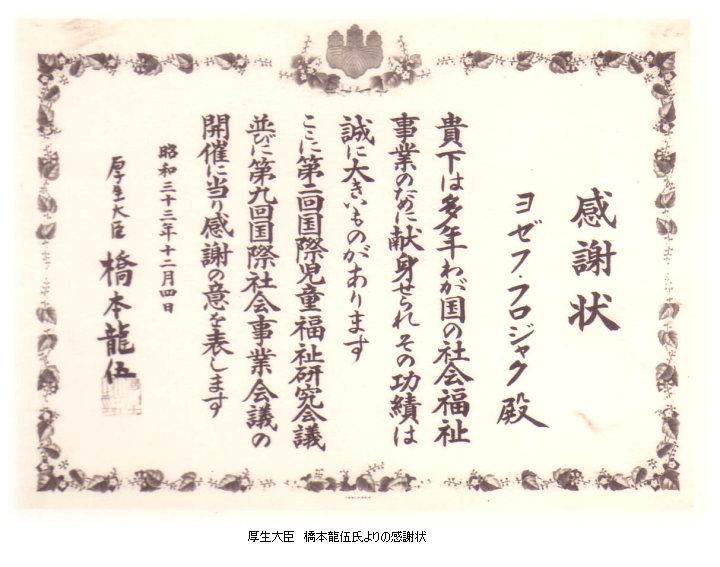 感謝状
ヨゼフ・フロジャク殿
貴下は多年わが国の社会福祉
事業のために献身せられその功績は
誠に大きいものがあります
ここに第二回国際児童福祉研究会議
並びに第九回国際社会事業会議の
開催に当り感謝の意を表します
昭和三十三年十二月四日
厚生大臣 橋本龍伍
厚生大臣 橋本龍伍氏よりの感謝状